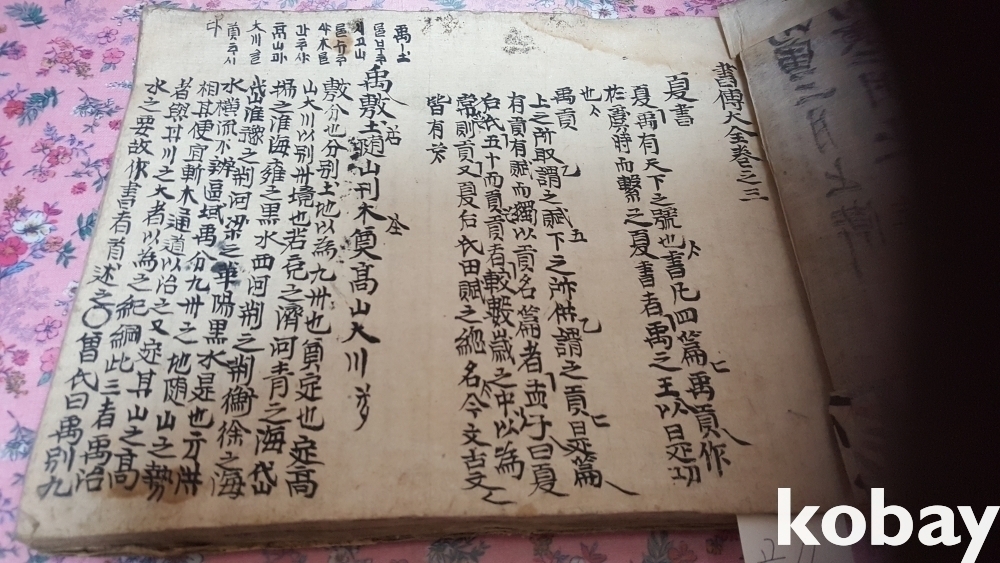 書傳大全卷之三
夏書
夏禹有天下之號也書凡四篇禹貢作
於虞時而繫之夏書者禹之王以是功
也
禹貢
上之所取謂之賦下之所供謂之貢是篇
有貢有賦而獨以貢名篇者孟子曰夏
后氏五十而貢貢者較數歲之中以為
常則貢又夏后氏田賦之總名今文古文
皆有
禹敷土隨山刊木奠高山大川
敷分也分別土地以為九州也奠定也定高
山大川以別州境也若兗之濟河青之海岱
揚之淮海雍之黑水西河荊之荊衡徐之海
岱淮豫之荊河梁之華陽黑水是也方洪
水橫流不辨區域禹分九州之地随山之勢
相其便宜斬木通道以治之又定其山之高
者與其川之大者以為之紀綱此三者禹治
水之要故作書者首述之○曾氏曰禹別九
kobay